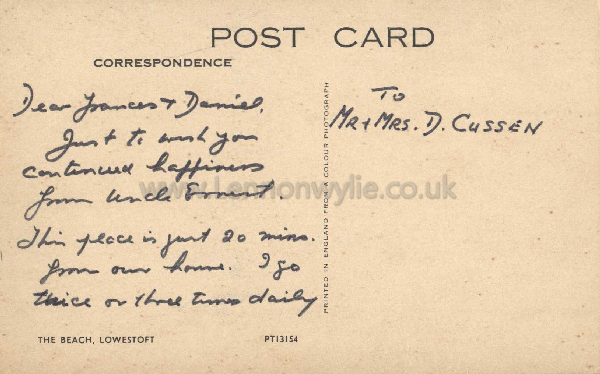 POST CARD
CORRESPONDENCE
Dear Frances & Daniel,
Just to wish you
continued happiness
from Uncle Ernest.
This place is just 20 mins.
from our home. I go
twice or three times daily
TO
MR & MRS. D. CUSSEN
PRINTED IN ENGLAND FROM A COLOUR PHOTOGRAPH
THE BEACH, LOWESTOFT
PT13154
www.Lennonwylie.co.uk